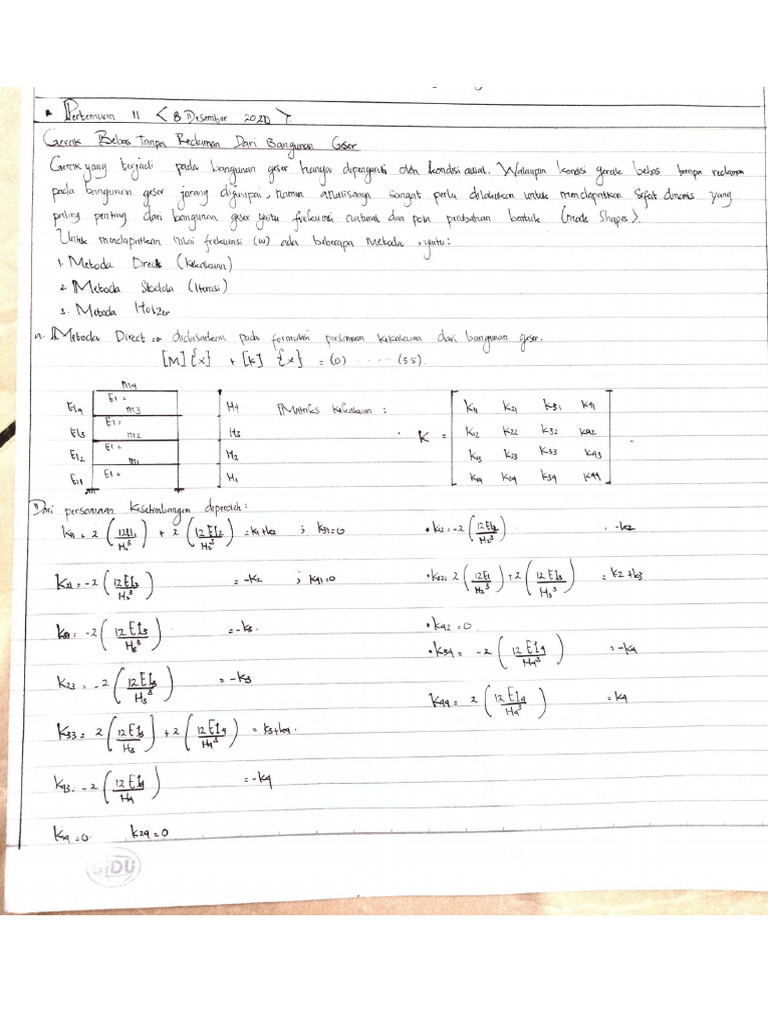 • Pertemuan 11 < 8 Desember 2020 >.
Gerak Bebas Tanpa Redaman Dari Bangunan Geser
Gerak yang terjadi pada bangunan geser hanya dipengaruhi oleh kondisi awal. Walaupun kondisi gerak bebas tanpa redaman
pada bangunan geser jarang dijumpai, namun analisanya sangat perlu dilakukan untuk mendapatkan sifat dinamis yang
paling penting dari bangunan geser yaitu frekuensi natural dan pola perubahan bentuk (mode shapes).
Untuk mendapatkan nilai frekuensi (w) ada beberapa Metoda, yaitu:
1. Metoda Direct (kekakuan)
2. Metoda Stodola (Iterasi)
3. Metoda Holzer
a. Metoda Direct => didasarkan pada formulasi persamaan kekakuan dari bangunan geser.
[M]{x} + [K] {x} = (0) ..... (55).
m4
EI4 EI = m3 H4
EI3 EI = m2 H3
EI2 EI = m1 H2
EI1 EI = H1
Matriks kekakuan :
K =
K11 K21 K31 K41
K12 K22 K32 K42
K13 K23 K33 K43
K14 K24 K34 K44
Dari persamaan Kesetimbangan diperoleh:
K11 = 2 (12EI1/H1³) + 2 (12EI2/H2³) = k1+k2 ; K31=0 • K12 = -2 (12EI2/H2³) = -k2
K21 = -2 (12EI2/H2³) = -K2 ; K41=0 • K22 = 2 (12EI/H2³) + 2 (12EI3/H3³) = K2 + k3
K32 = -2 (12EI3/H3³) = -K3. • K42 = 0
K23 = -2 (12EI3/H3³) = -K3 • K34 = -2 (12EI4/H4³) = -K4
K33 = 2 (12EI3/H3³) + 2 (12EI4/H4³) = K3+k4. K44 = 2 (12EI4/H4³) = K4
K43 = -2 (12EI4/H4) = -K4
K14 = 0 K24 = 0
SiDU